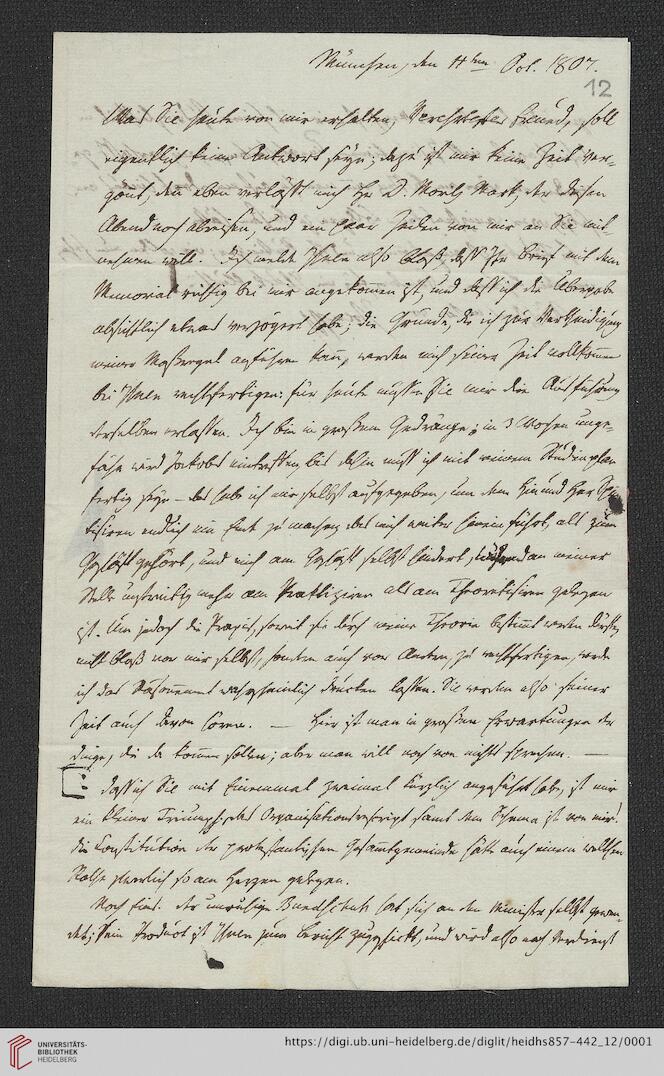 München, den 11ten Oct. 1807.
12
Was Sie heute von mir erhalten, Verehrtester Freund, soll
eigentlich keine Antwort seyn; dazu ist mir keine Zeit ver-
gönt, denn eben verläßt mich Hr D. der diesen
Abend noch abreisen, und ein paar Zeilen von mir an Sie mit
nehmen will. Ich melde Ihnen also bloß, daß Ihr Brief mit dem
Memorial richtig bei mir angekommen ist, und daß ich die Übergabe
absichtlich etwas verzögert habe; die Gründe, die ich zur Vertheidigung
meiner Maßregel anführen kann, werden mich seiner Zeit vollkommen
bei Ihnen rechtfertigen: für heute müssen Sie mir die Ausführung
derselben erlassen. Ich bin in großem Gedränge; in 3 Wochen unge-
fähr wird Jacobs eintreffen, bis dahin muß ich mit meinem Studienplan
fertig seyn – das habe ich mir selbst aufgegeben, um dem Hin und Her
endlich ein End zu machen, das mich weiter herein führt, als zum
Geschäft gehört, und mich am Geschäft selbst hindert, während an meiner
Stelle unstreitig mehr am Praktiziren als am Theoretisiren gelegen
ist. Um jedoch die Praxis, soweit sie durch meine Theorie bestimmt werden dürfte,
nicht bloß vor mir selbst, sondern auch vor Andern, zu rechtfertigen, werde
ich das Raisonnement wahrscheinlich drucken lassen. Sie werden also seiner
Zeit auch davon hören. — Hier ist man in großen Erwartungen der
Dinge, die da kommen sollen; aber man will noch von nichts sprechen. —
Daß ich Sie mit Einemmal zweimal kürzlich angeführt habe, ist mir
ein kleiner Triumph: das Organisationsrescript samt dem Schema ist von mir!
die Constitution der protestantischen Gesammtgemeinde hätte auch einem
Rathe schwerlich so am Herzen gelegen.
Noch Eins. der unruhige hat sich an den Minister selbst gewen-
det; sein Product ist Ihnen zum Bericht zugeschickt, und wird also nach Verdienst
UNIVERSITÄTS-
BIBLIOTHEK
HEIDELBERG
https://digi.ub.uni-heidelberg.de/diglit/heidhs857-442_12/0001